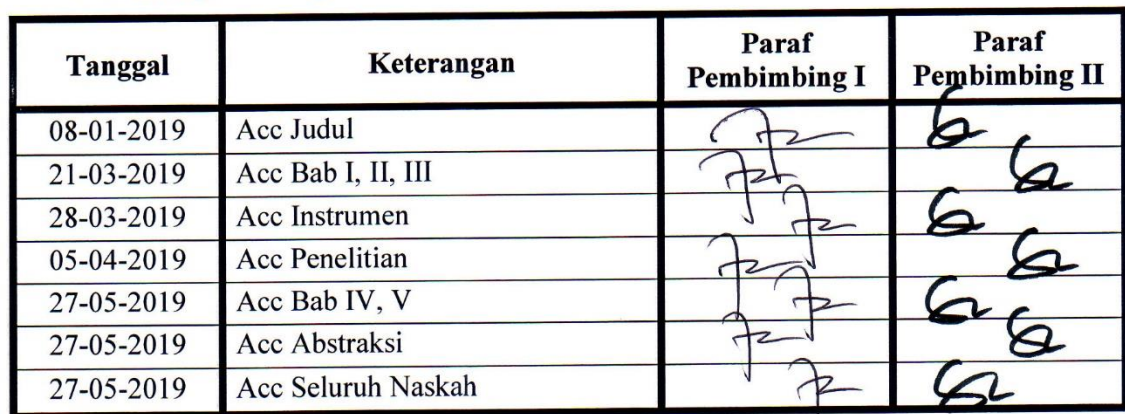 Tanggal
Keterangan
Paraf
Pembimbing I
Paraf
Pembimbing II
08-01-2019 Acc Judul
21-03-2019 Acc Bab I, II, III
28-03-2019 Acc Instrumen
05-04-2019 Acc Penelitian
27-05-2019 Acc Bab IV, V
27-05-2019 Acc Abstraksi
27-05-2019 Acc Seluruh Naskah